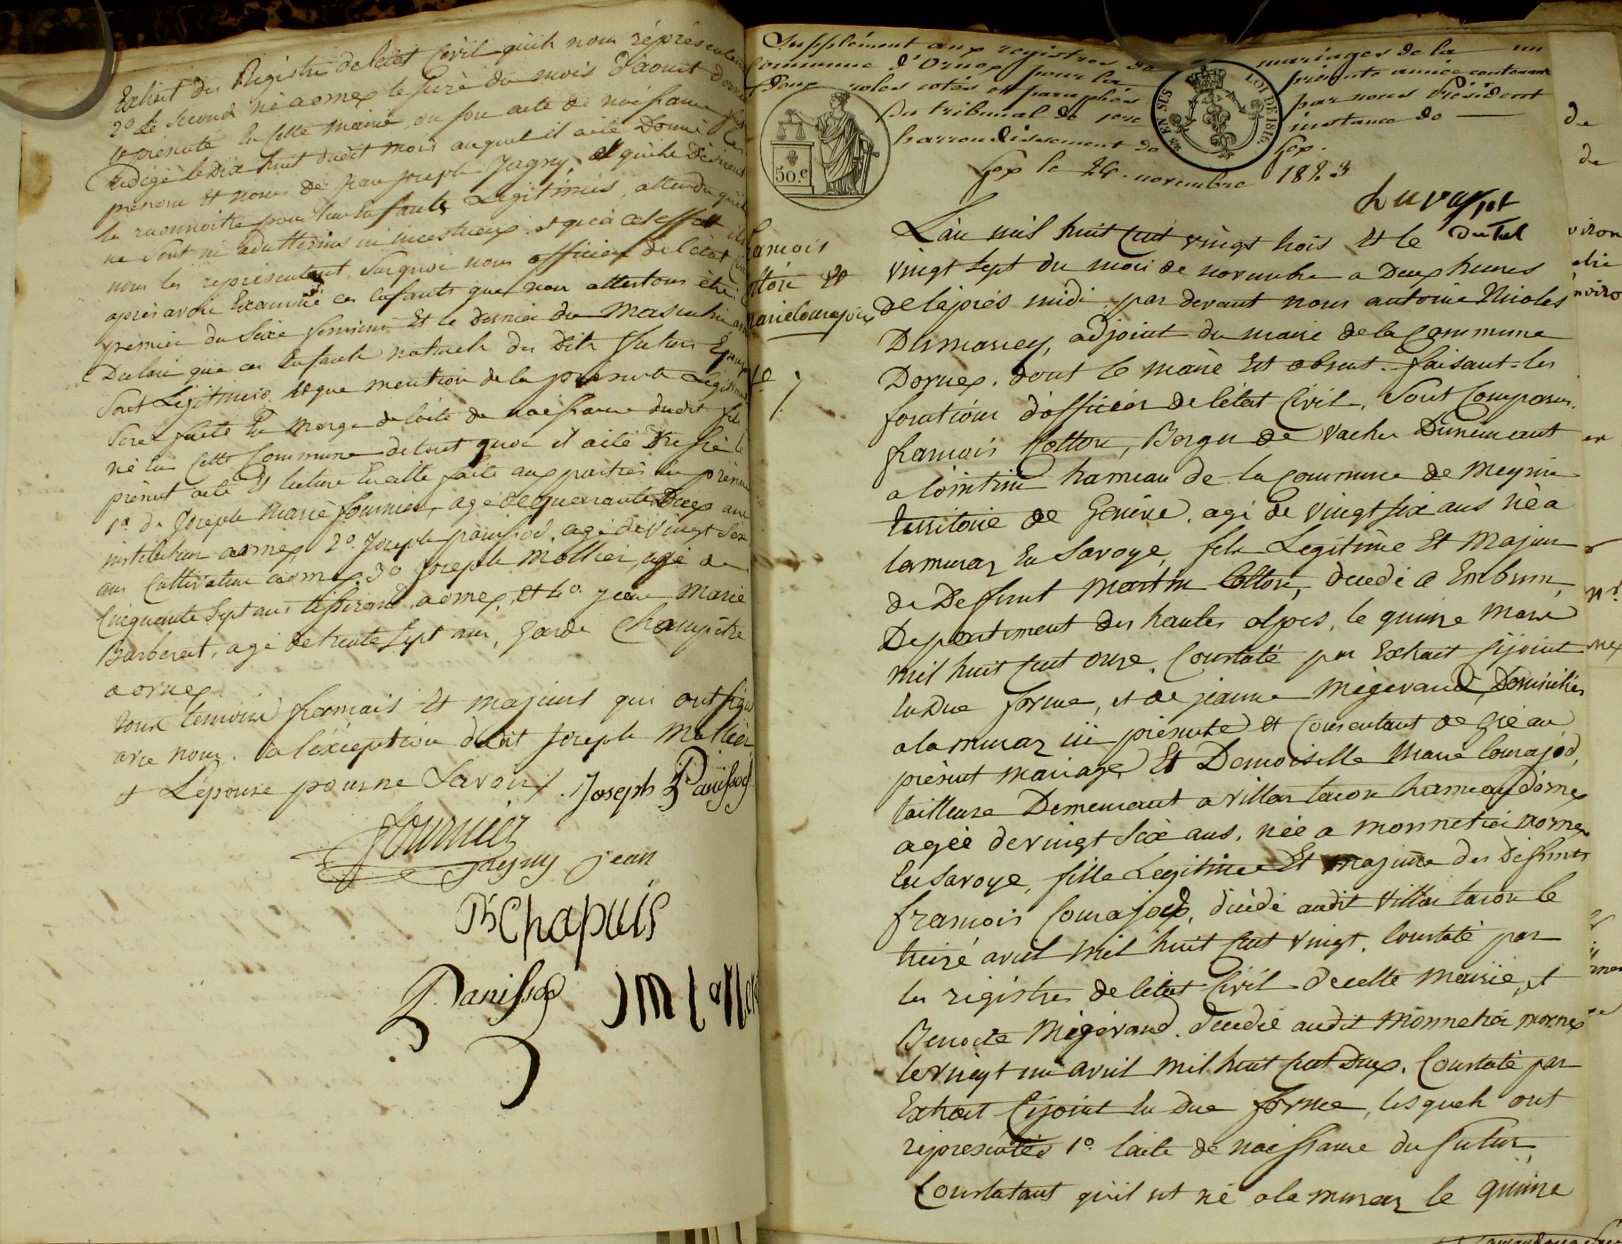 Extrait des Registres de l'état Civil qu'ils nous représentent
2º Le second né a ornex le du mois d'aoust
rédigé le dix huit dudit mois auquel il a été Donné
prénom et noms de jean joseph Jugny et qu'ils
la reconnoitre pour leurs Enfants Légitimes, attendu qu'ils
ne sont ni adultérins ni incestueux et qu'à cet effet ils
nous les représentent. Surquoi nous officier de l'état
après avoir Examiné ces Enfants que nous attestons être
premier du Sexe féminin Et le dernier du Masculin
Declare que ces Enfants naturels des dits futurs Epoux
Sont Légitimés. et que mention de la présente
Sera faite En marge de l'acte de naissance dudit fils
né En Cette Commune de tout quoi il a été Dressé le
présent acte Et lecture En a été faite aux parties en présence
1º de Joseph Marie fournier, agé de quarante Deux ans
instituteur a ornex 2º Joseph panissod, agé de Vingt Six
ans Cultivateur a ornex 3º Joseph Mollier agé de
Cinquante Sept ans tisserand, a ornex, et 4º jean Marie
Barberat, agé de trente Sept ans, Garde Champêtre
a ornex
tous témoins francais Et majeurs qui ont signé
avec nous. a l'exception dudit Joseph Mollier
et L'épouse pour ne Savoir. Joseph Panissod
Fournier
jugny jean
Ph Chapuis
Panissod
Supplément aux registres de mariages de la
Commune d'Ornex pour la présente année contenant
Deux rôles cotés et paraphés par nous Président
Du tribunal de 1ere instance de
l'arrondissement de Gex.
Gex le 24 novembre 1823
50.c
LOI DE 1816.
francois
Cotton et
marie Courajod
L'an mil huit Cent vingt trois Et le
vingt Sept du mois de novembre a Deux heures
de l'après midi par devant nous antoine Nicolas
Dumarey, adjoint du maire de la Commune
Dornex, dont le maire Est absent. faisant les
fonctions d'officier de l'état Civil, Sont Comparus
francois Cotton, Berger de Vaches Demeurant
a hameau de la commune de Meyrin
territoire de Genève, agé de vingt six ans né a
lamuraz En Savoye, fils Legitime Et Majeur
de Deffunt Martin Cotton, décédé a Embrun,
Département des hautes alpes, le quinze Mars
mil huit Cent onze, Constaté par Extrait Cijoint
En Due forme, et de jeanne Mégevand, Domiciliée
a lamuraz ici présente Et Consentant de gré au
présent mariage Et Demoiselle Marie Courajod,
tailleuse Demeurant a villar tacon hameau d'ornex
agée de vingt Six ans, née a monnetier mornex
En Savoye, fille Legitime Et majeure des Deffunts
francois Courajod, décédé audit Villar tacon le
treize avril mil huit Cent vingt, Constaté par
les régistres de l'état Civil de cette Mairie, et
Benoite Mégevand, décédée audit monnetier mornex
le vingt un avril mil huit Cent Deux, Constaté par
Extrait Cijoint En Due forme, lesquels ont
représentés 1º l'acte de naissance du futur
Constatant qu'il est né a la muraz le quinze